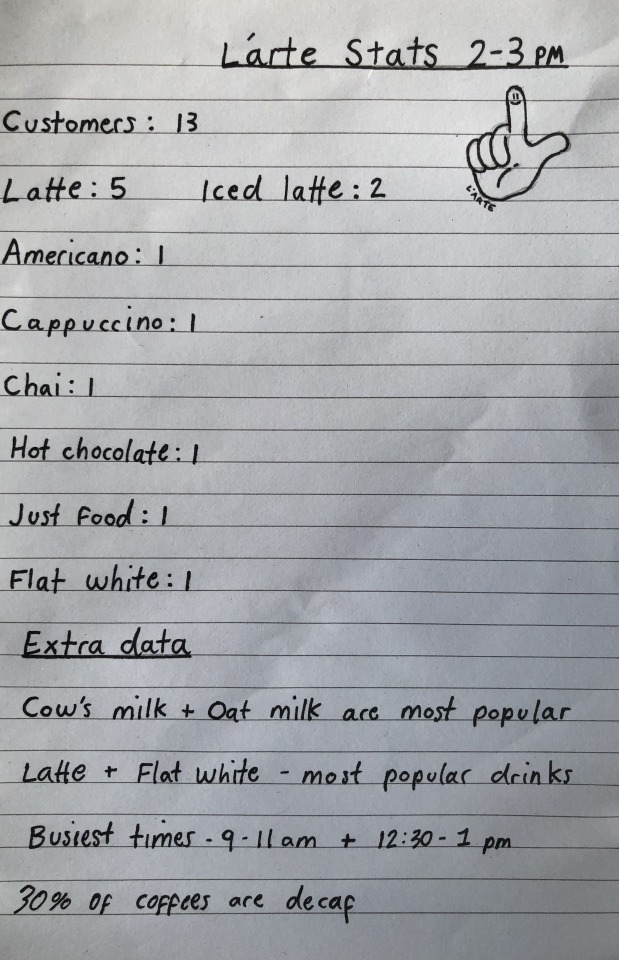 Lárte Stats 2-3 PM
Customers: 13
L'ARTE
Latte: 5 Iced latte: 2
Americano: 1
Cappuccino: 1
Chai: 1
Hot chocolate: 1
Just Food: 1
Flat white: 1
Extra data
Cow's milk + Oat milk are most popular
Latte + Flat white - most popular drinks
Busiest times - 9-11am + 12:30-1 pm
30% of coffees are decaf